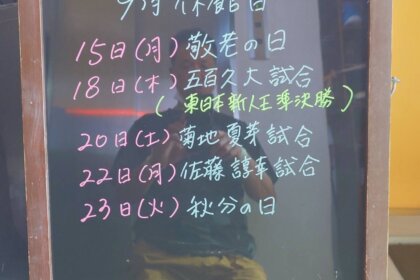 9月休館日
15日(月)敬老の日
18日(木)五百久大試合
(東日本新人王準決勝)
20日(土)菊地夏芽試合
22日(月)佐藤諄幸試合
23日(火)秋分の日